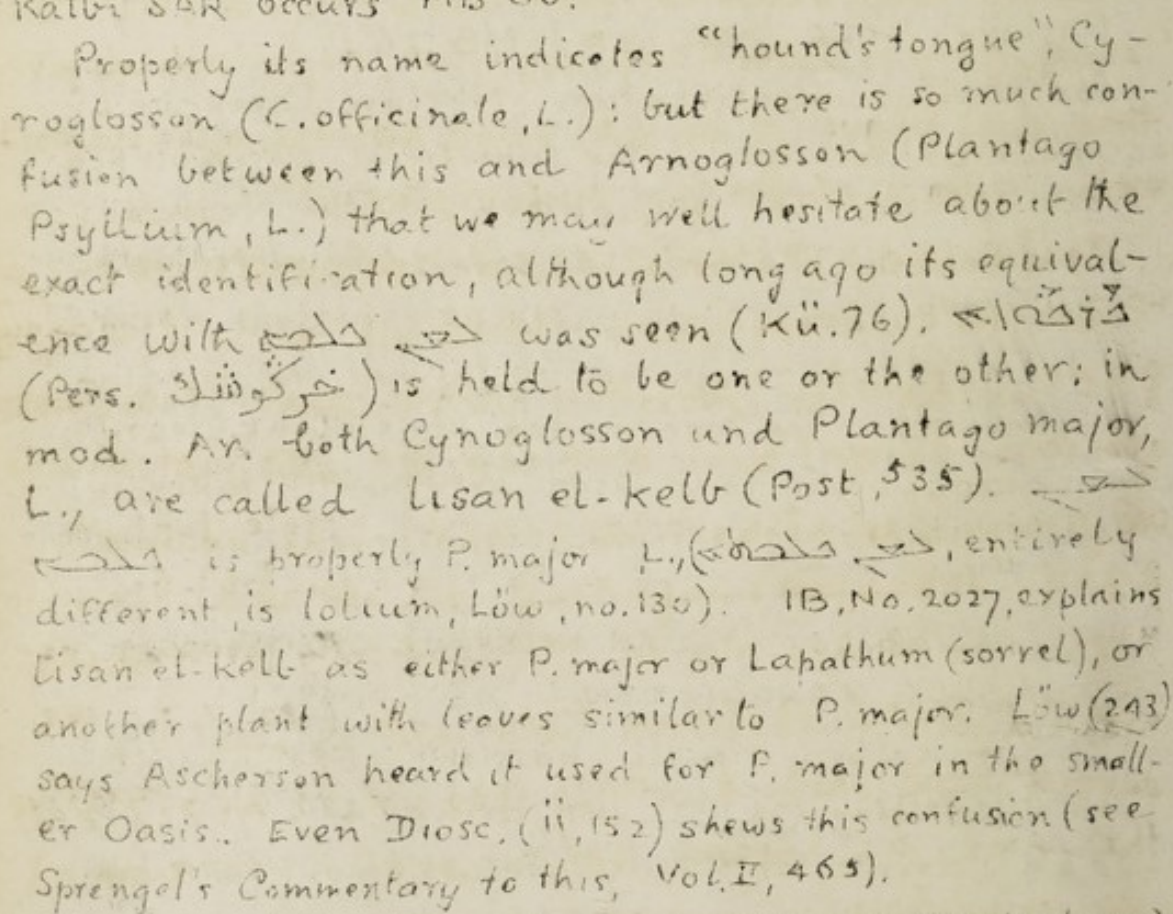 Kalbi SAR occurs
Properly its name indicates "hound's tongue", Cy-
noglosson (C. officinale, L.) : but there is so much con-
fusion between this and Arnoglosson (Plantago
Psyllium, L.) that we may well hesitate about the
exact identification, although long ago its equival-
ence with was seen (Kü. 76).
(Pers. خرگوشك) is held to be one or the other; in
mod. Ar. both Cynoglosson und Plantago major,
L., are called lisan el-kelb (Post, 535).
is properly P. major L., ( , entirely
different, is lolium, Löw, no. 130). IB, No. 2027, explains
Lisan el-kelb as either P. major or Lapathum (sorrel), or
another plant with leaves similar to P. major. Löw (243)
says Ascherson heard it used for P. major in the small-
er Oasis.. Even Diosc. (ii, 152) shews this confusion (see
Sprengel's Commentary to this, Vol. II, 465).